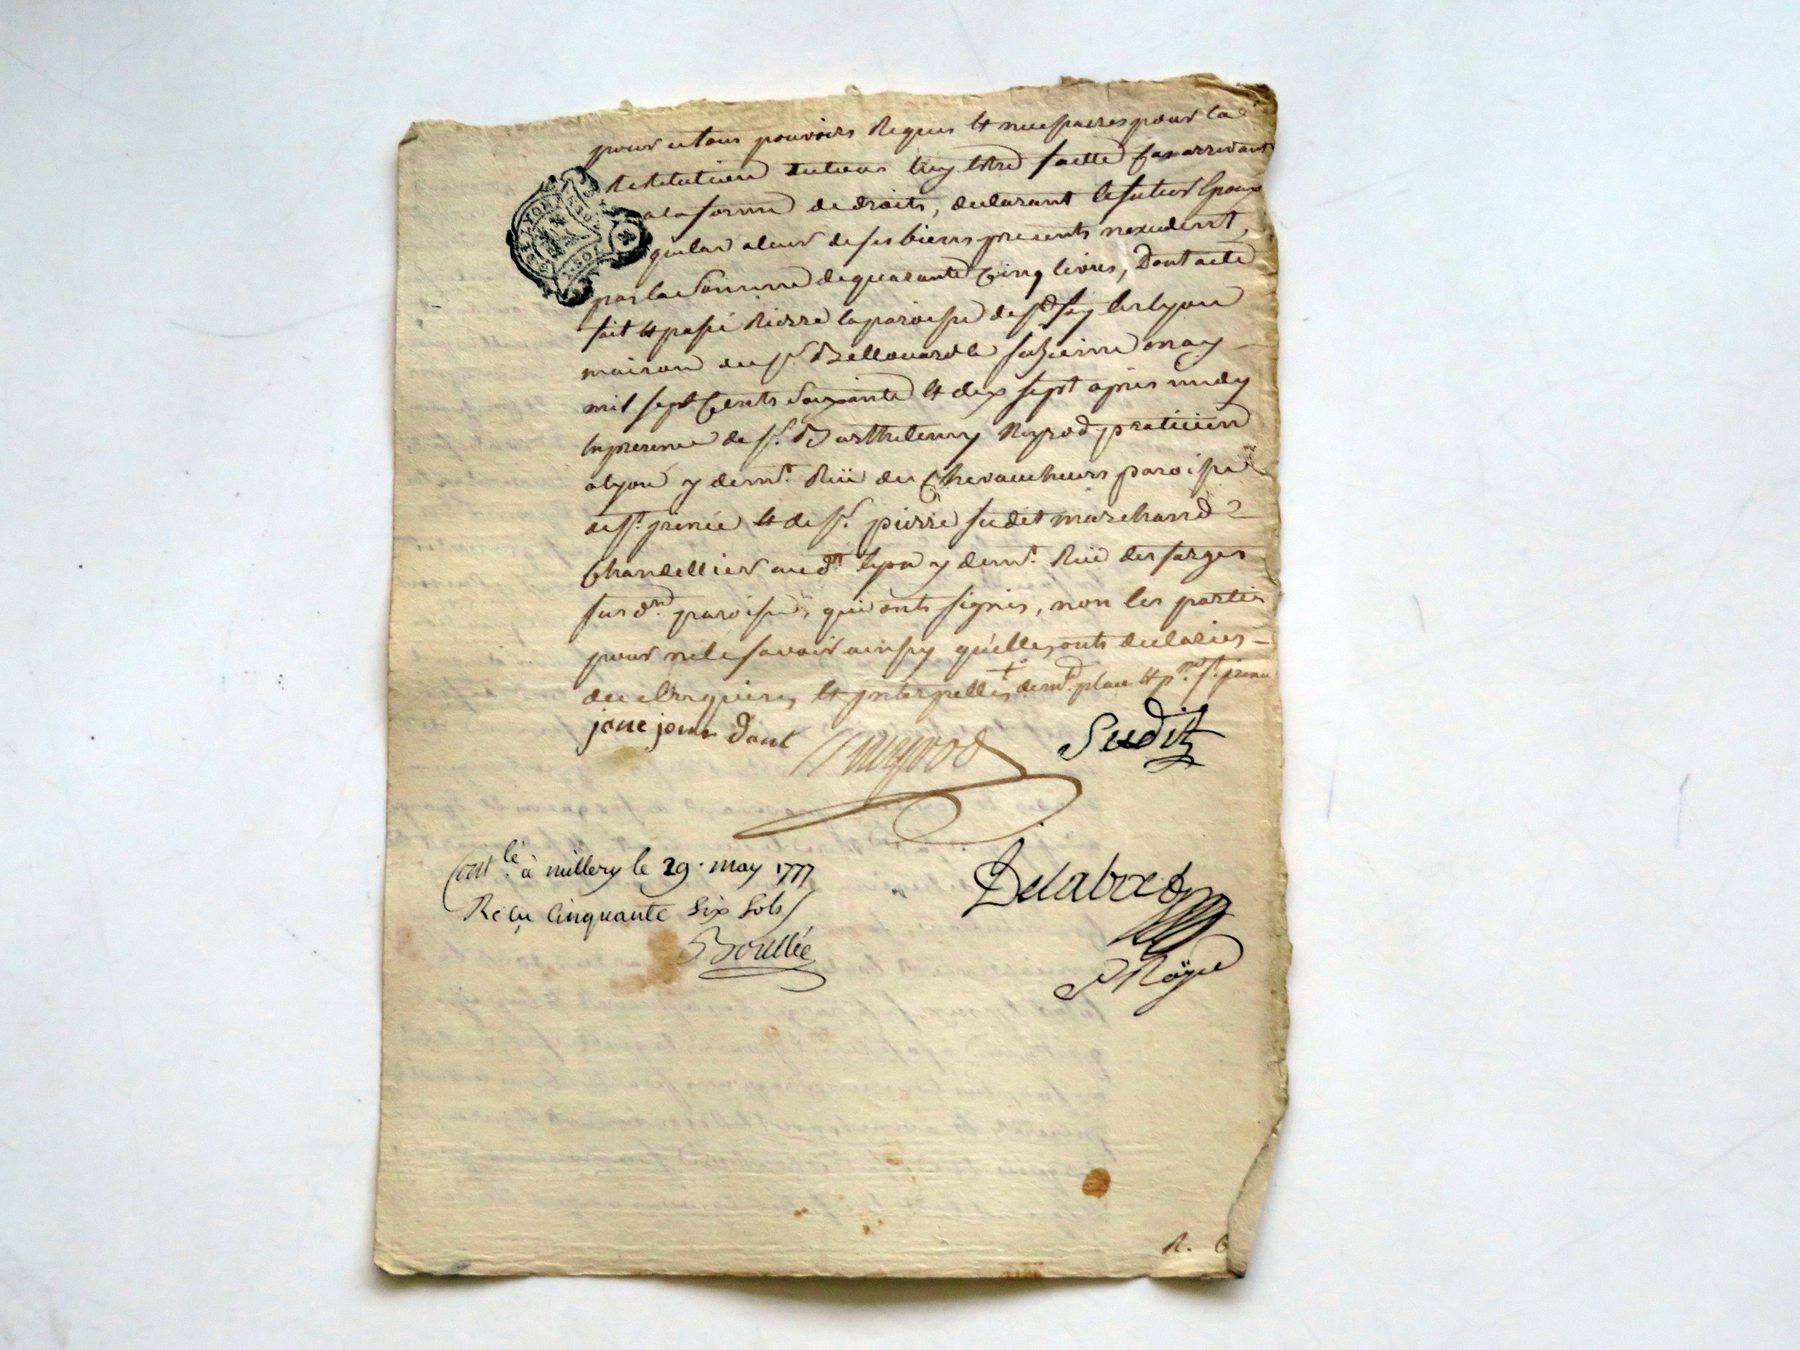 pour et tous pouvoirs Requis et necessaires pour la
Restitution luy être faitte Cas arrivant
a la forme de droits, declarant le futur Epoux
que la valeur de ses biens presents nexcedent,
pas la Somme de quarante Cinq livres, Dont acte
fait et passé
maison du sr. Bellouard le may
mil sept Cents Soixante et dix sept apres midy
En presence de sr. Barthelemy Reyrod praticien
a lyon y demt. Rüe des Chevaucheurs paroisse
de st. jrénée et de sr. pierre Sudet marchand
Chandellier aud. lyon y demt. Rüe des farges
susdte. paroisse, qui ont signés, non les parties
pour ne le savoir ainsy qu'elles ont declarées
de ce Enquises et jnterpellés demt. place et p.sse st. jrenee
dont
Sudit
Contlé à millery le 29. may 1777
Reçu Cinquante Six Sols
Boullée
Delabre
R.